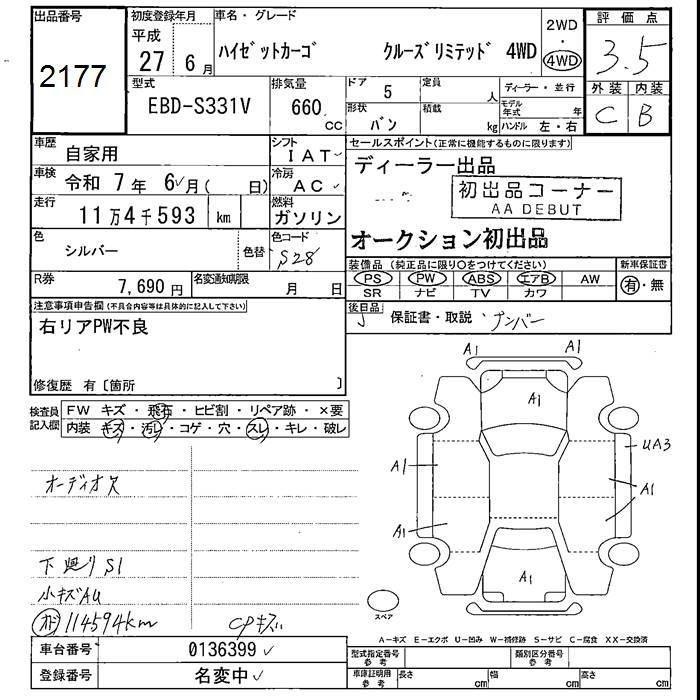 出品番号
2177
初度登録年月
平成
27 6月
車名・グレード
ハイゼットカーゴ クルーズリミテッド 4WD
2WD
・
4WD
評価点
3.5
外装 内装
C B
型式
EBD-S331V
排気量
660
CC
ドア 5
定員 人
形状 バン
積載 kg
ディーラー・並行
モデル年式 年
ハンドル 左・右
車歴 自家用
シフト IAT
車検 令和 7年 6月( 日)
冷房 AC
走行 11万4千593 km
燃料 ガソリン
色 シルバー
色替
色コード S28
R券 7,690円
名変通知期限 月 日
セールスポイント(正常に機能するものに限ります)
ディーラー出品
初出品コーナー
AA DEBUT
オークション初出品
装備品(純正品に限り○をつけてください)
PS PW ABS エアB AW
SR ナビ TV カワ
新車保証書
有・無
後日品
保証書・取説 ナンバー
注意事項申告欄(不具合内容等は具体的に記入して下さい)
右リアPW不良
修復歴 有〔箇所 〕
検査員記入欄
FW キズ・飛石・ヒビ割・リペア跡・×要
内装 キズ・汚レ・コゲ・穴・スレ・キレ・破レ
オーディオ欠
下廻りS1
小キズAU
114594km
CPキズ
A1 A1
A1
UA3
A1
A1
A1
A1
スペア
A-キズ E-エクボ U-凹み W-補修跡 S-サビ C-腐食 XX-交換済
車台番号 0136399
登録番号 名変中
型式指定番号 参考
類別区分番号 参考
車庫証明用 参考
長さ cm 幅 cm 高さ cm